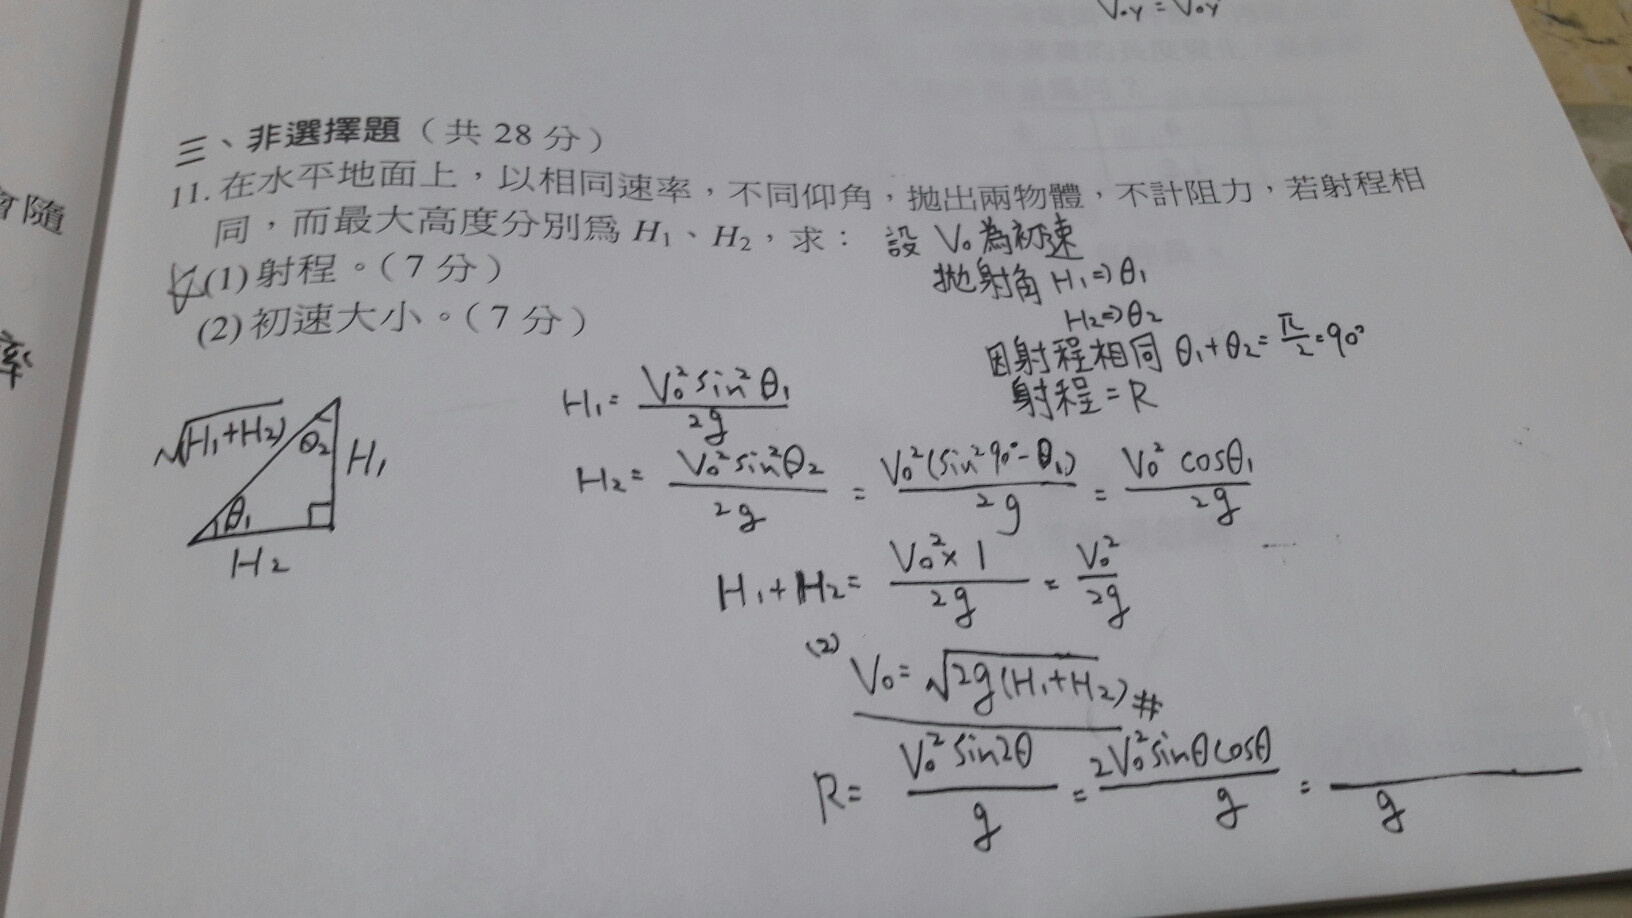 V₀y = V₀y
三、非選擇題（共 28 分）
11. 在水平地面上，以相同速率，不同仰角，拋出兩物體，不計阻力，若射程相
同，而最大高度分別為 H₁、H₂，求：
(1) 射程。（7 分）
(2) 初速大小。（7 分）
設 V₀ 為初速
拋射角 H₁ => θ₁
H₂ => θ₂
因射程相同 θ₁ + θ₂ = π/2 = 90°
射程 = R
√(H₁+H₂)
θ₂
H₁
θ₁
H₂
H₁ = V₀² sin² θ₁ / 2g
H₂ = V₀² sin² θ₂ / 2g = V₀² (sin² 90° - θ₁) / 2g = V₀² cosθ₁ / 2g
H₁ + H₂ = V₀² × 1 / 2g = V₀² / 2g
(2) V₀ = √2g(H₁+H₂) #
R = V₀² sin2θ / g = 2V₀² sinθ cosθ / g = / g
會隨
率